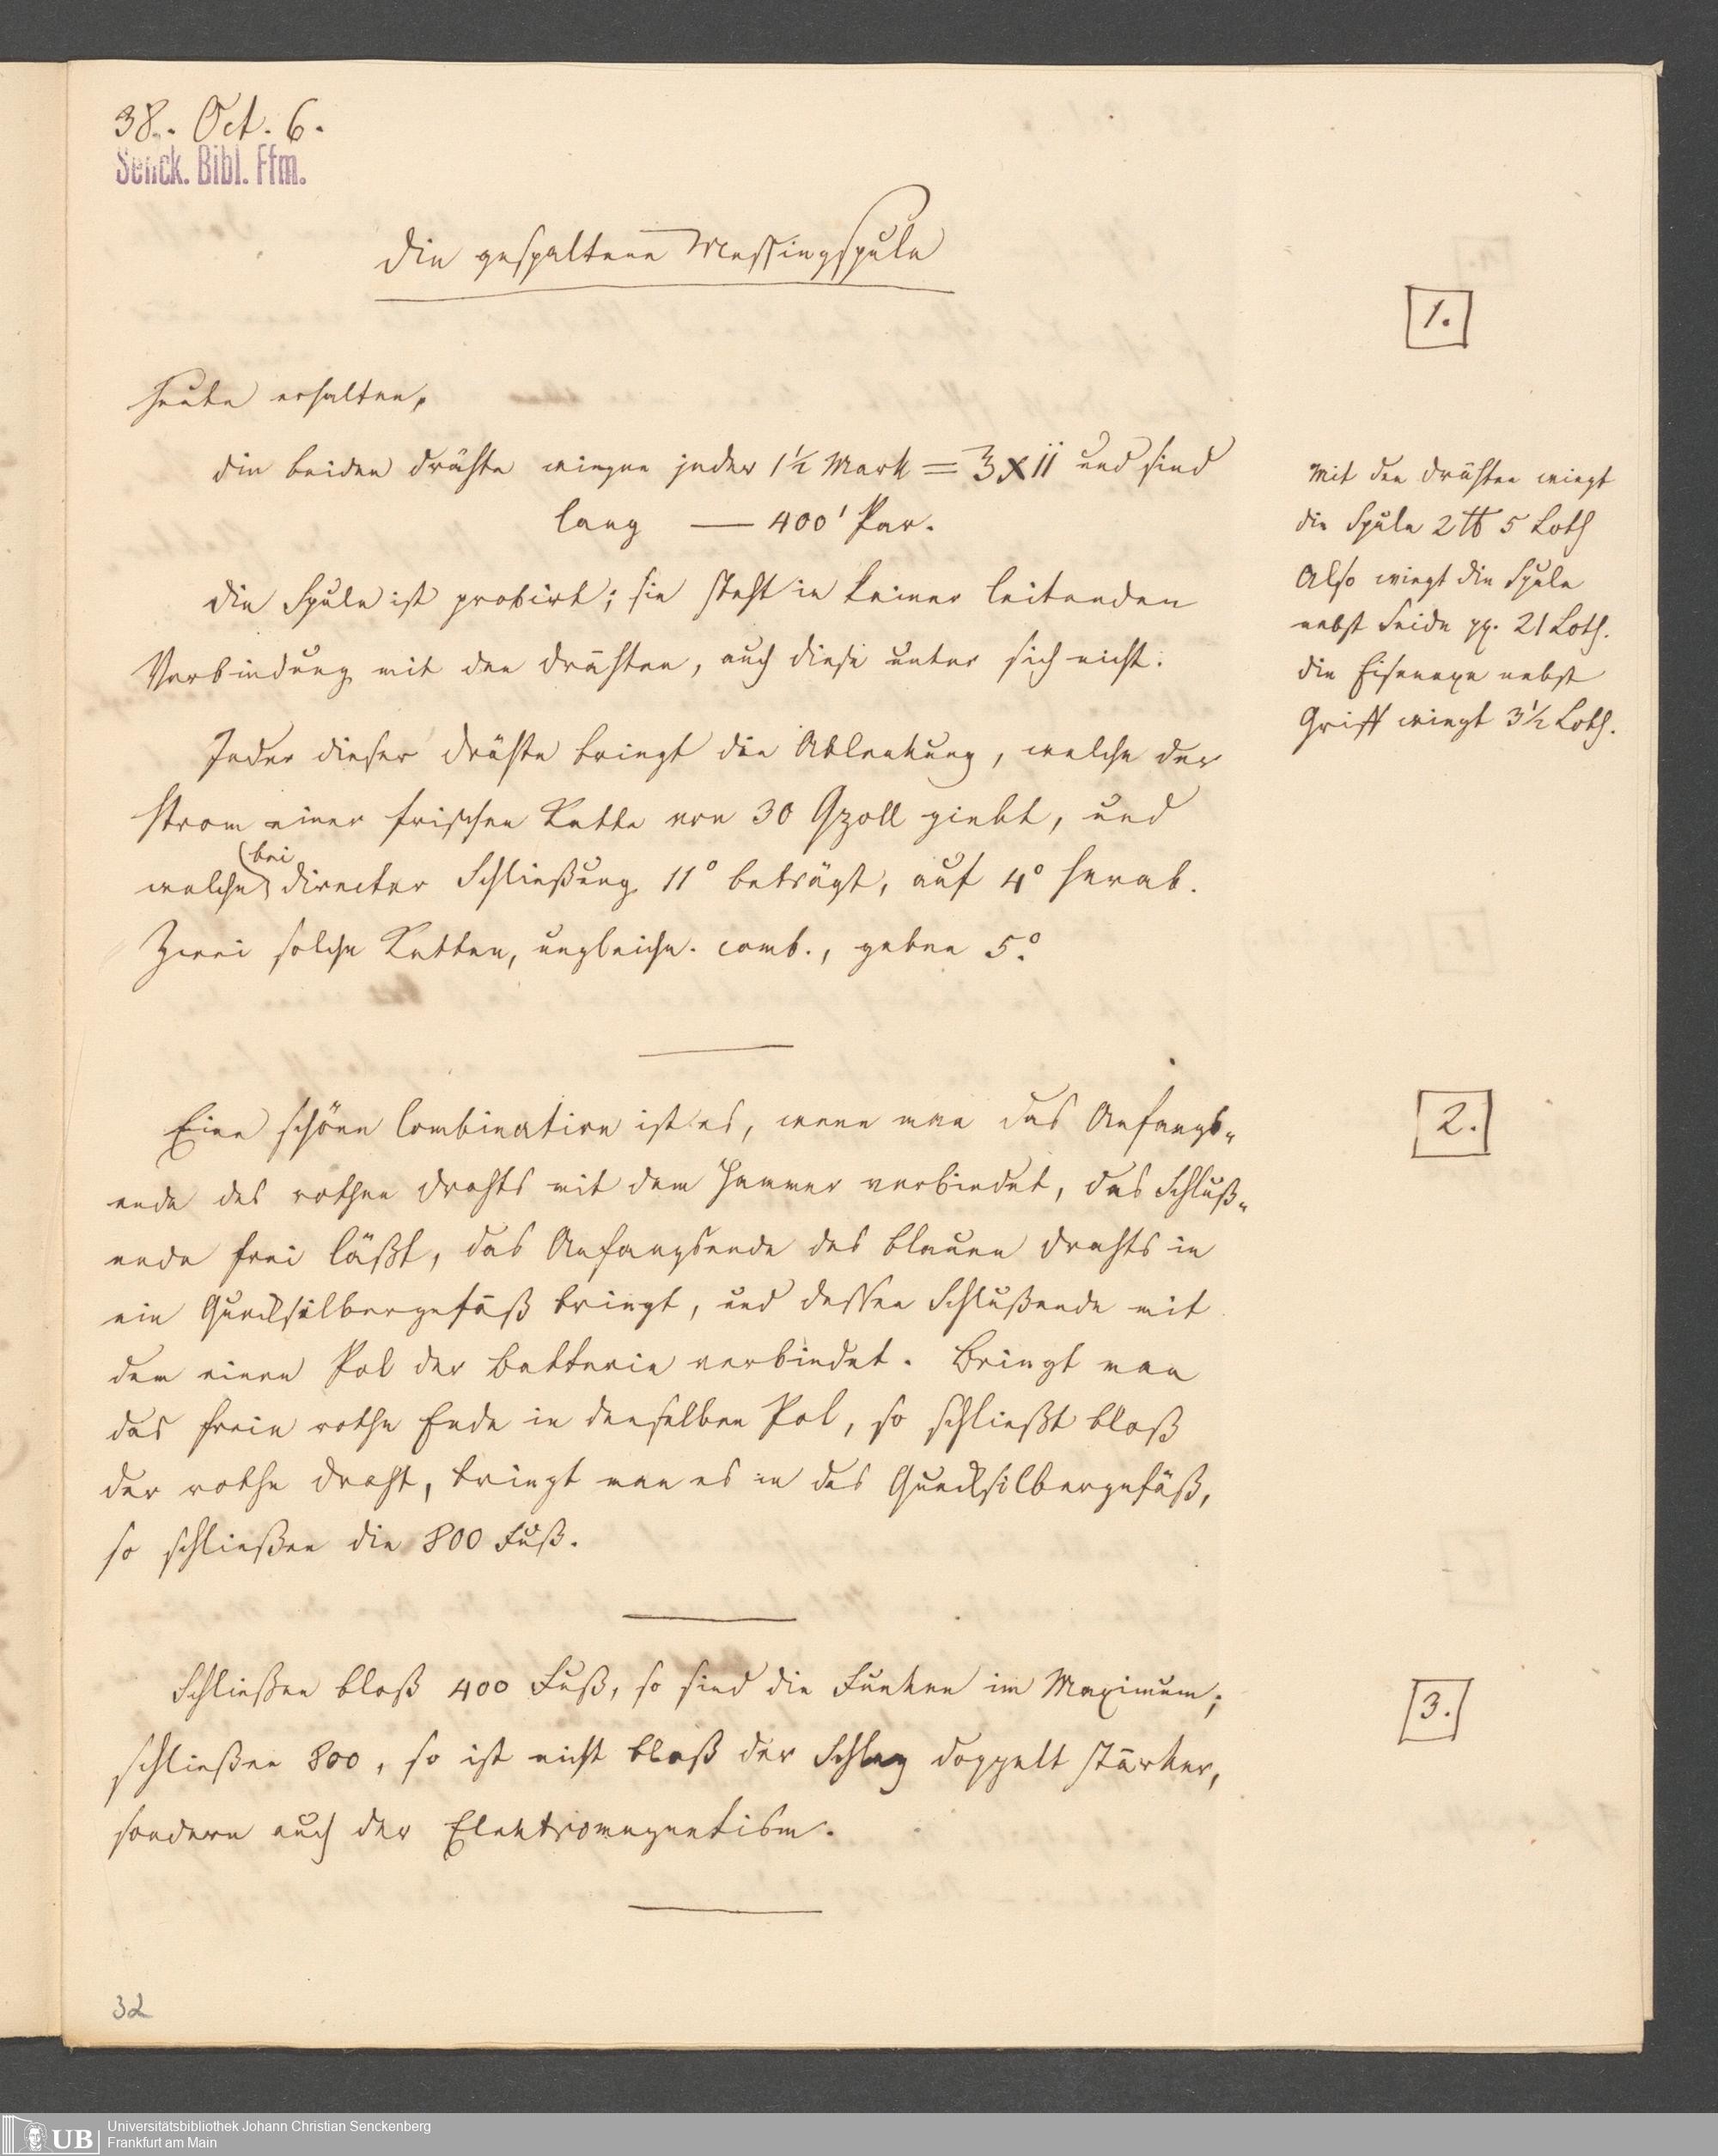 38. Oct. 6.
Senck. Bibl. Ffm.
Die gespaltene Messingspule
1.
Heute erhalten,
Die beiden Drähte wiegen jeder 1½ Mark = ℥xii und sind
lang — 400' Par.
Mit den Drähten wiegt
die Spule 2 ℔ 5 Loth
Also wiegt die Spule
nebst Seide pp. 21 Loth.
Die Eisenaxe nebst
Griff wiegt 3½ Loth.
Die Spule ist probirt; sie steht in keiner leitenden
Verbindung mit den Drähten, auch diese unter sich nicht.
Jeder dieser Drähte bringt die Ablenkung, welche der
Strom einer frischen Kette von 30 Qzoll giebt, und
welche bei directer Schließung 11° beträgt, auf 4° herab.
Zwei solche Ketten, ungleichn. comb., geben 5°.
2.
Eine schöne Combination ist es, wenn man das Anfangs-
ende des rothen Drahts mit dem Hammer verbindet, das Schluß-
ende frei läßt, das Anfangsende des blauen Drahts in
ein Quecksilbergefäß bringt, und dessen Schlußende mit
dem einen Pol der Batterie verbindet. Bringt man
das freie rothe Ende in denselben Pol, so schließt bloß
der rothe Draht, bringt man es in das Quecksilbergefäß,
so schließen die 800 Fuß.
3.
Schließen bloß 400 Fuß, so sind die Funken im Maximum;
schließen 800, so ist nicht bloß der Schlag doppelt stärker,
sondern auch der Elektromagnetism.
32
UB Universitätsbibliothek Johann Christian Senckenberg
Frankfurt am Main